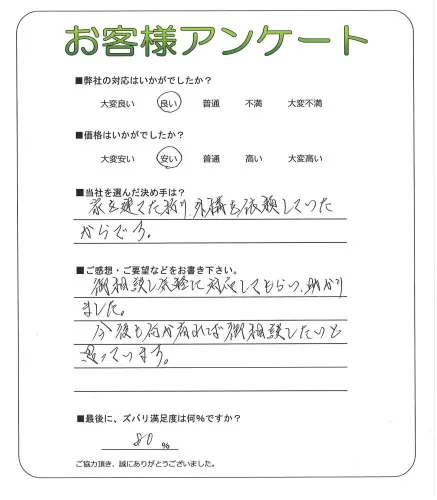 お客様アンケート
■弊社の対応はいかがでしたか?
大変良い 良い 普通 不満 大変不満
■価格はいかがでしたか?
大変安い 安い 普通 高い 大変高い
■当社を選んだ決め手は?
家を建てた折り、外構を依頼していた
からです。
■ご感想・ご要望などをお書き下さい。
御相談し気軽に対応してもらい、助かり
ました。
今後も何か有れば御相談したいと
思っています。
■最後に、ズバリ満足度は何%ですか?
80 %
ご協力頂き、誠にありがとうございました。